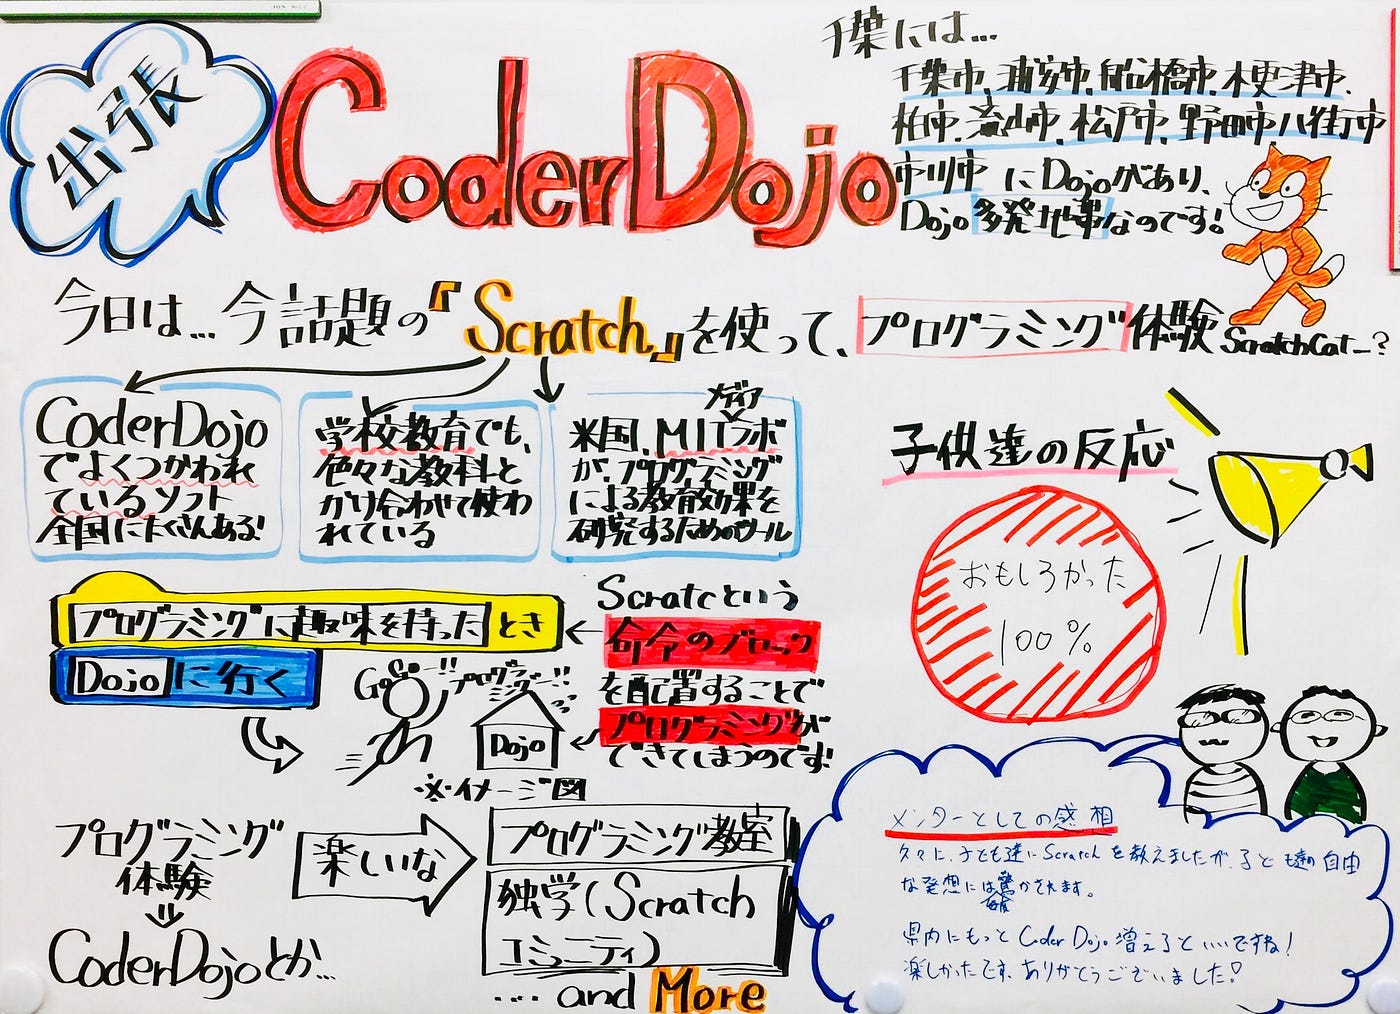 出張
CoderDojo
千葉には…
千葉市、浦安市、船橋市、木更津市、
柏市、流山市、松戸市、野田市、八街市
市川市 にDojoがあり、
Dojo 多発地帯なのです!
今日は…今話題の『Scratch』を使って、プログラミング体験
ScratchCat…?
CoderDojo
でよくつかわれ
ているソフト
全国にたくさんある!
学校教育でも、
色々な教科と
かけ合わせて使わ
れている
メディア
米国、MITラボ
が、プログラミング
による教育効果を
研究するためのツール
子供達の反応
おもしろかった
100%
プログラミングに趣味を持ったとき
Dojoに行く
Scratcという
命令のブロック
を配置することで
プログラミングが
できてしまうのです!
GoGo-!!
プログラ
ミング-!!
Dojo
※イメージ図
プログラミング
体験
CoderDojoとか…
楽しいな
プログラミング教室
独学(Scratch
コミュニティ)
.... and More
メンターとしての感想
久々に、子ども達にScratchを教えましたが、子ども達の自由
な発想には驚かされます。
県内にもっとCoder Dojo増えるといいですね!
楽しかったです、ありがとうございました!